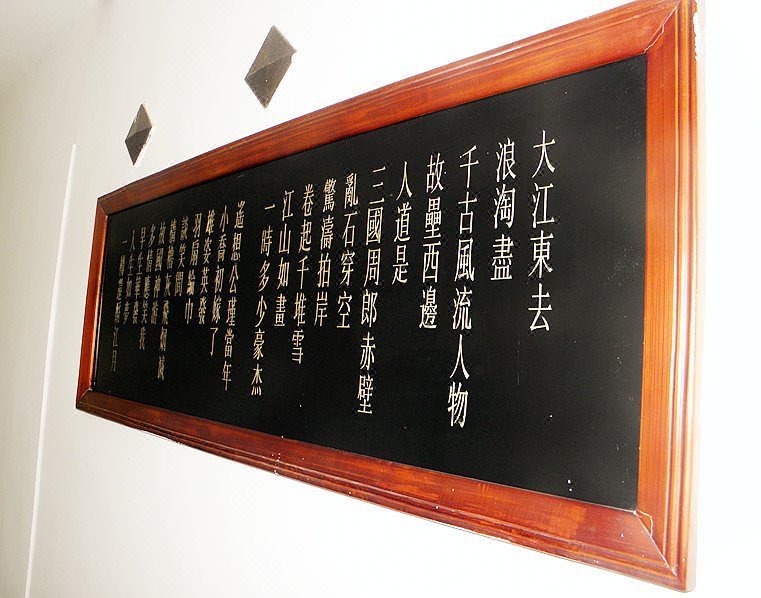 大江東去
浪淘盡
千古風流人物
故壘西邊
人道是
三國周郎赤壁
亂石穿空
驚濤拍岸
卷起千堆雪
江山如畫
一時多少豪杰
遙想公瑾當年
小喬初嫁了
雄姿英發
羽扇綸巾
談笑間
檣櫓灰飛烟滅
故國神游
多情應笑我
早生華發
人生如夢
一樽還酹江月